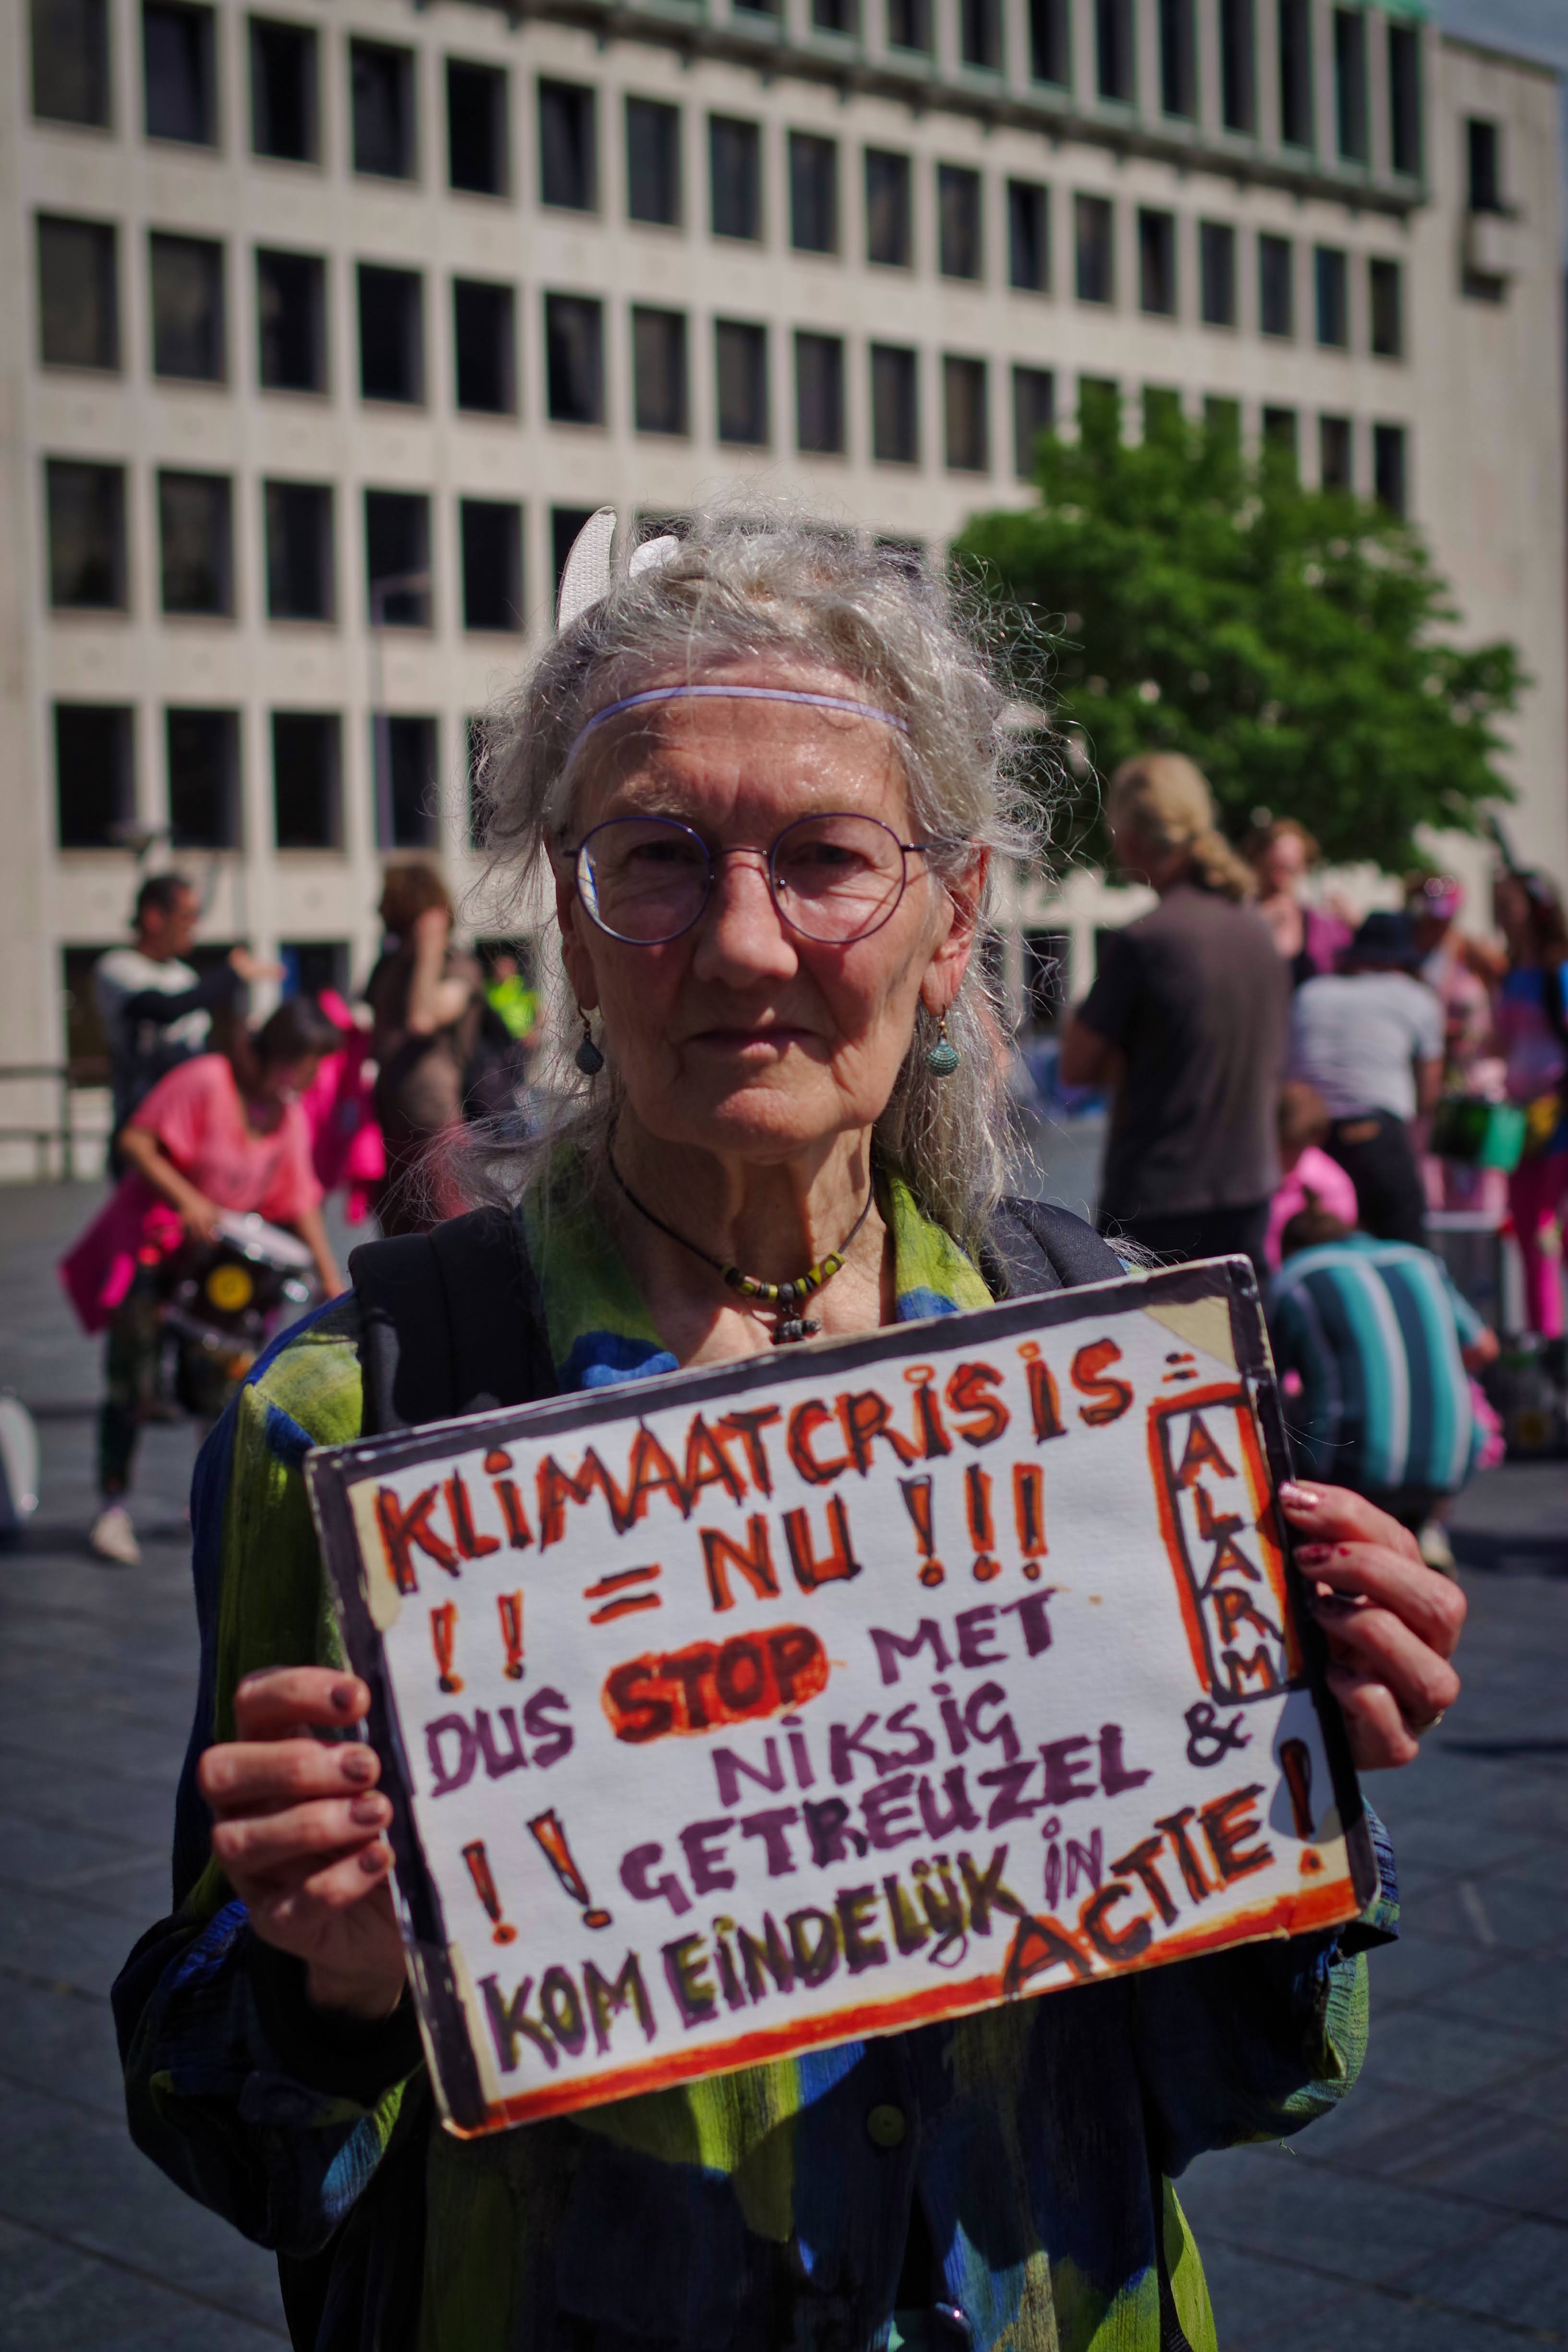 KLIMAATCRISIS =
!! = NU !!!
ALARM
DUS STOP MET
NIKSIG &
!! GETREUZEL
KOM EINDELIJK IN ACTIE!